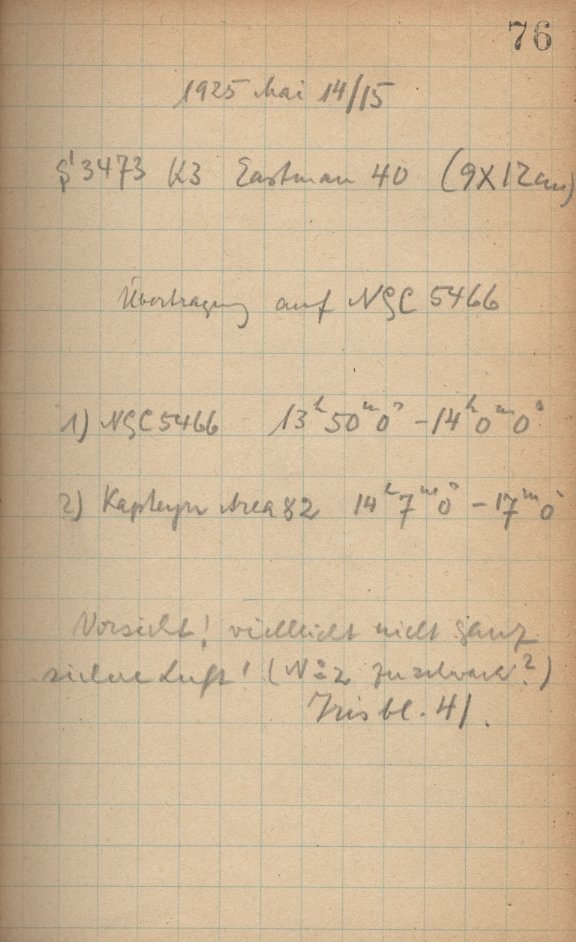 76
1925 Mai 14/15
3473 K3 Eastman 40 (9X12cm)
Übertragung auf NGC 5466
1) NGC 5466 13ʰ50ᵐ0ˢ - 14ʰ0ᵐ0ˢ
2) Kapteyn Area 82 14ʰ7ᵐ0ˢ - 17ᵐ0ˢ
Vorsicht! vielleicht nicht ganz
sichere Luft! (N=2 zu schwach?)
Irisbl. 41.